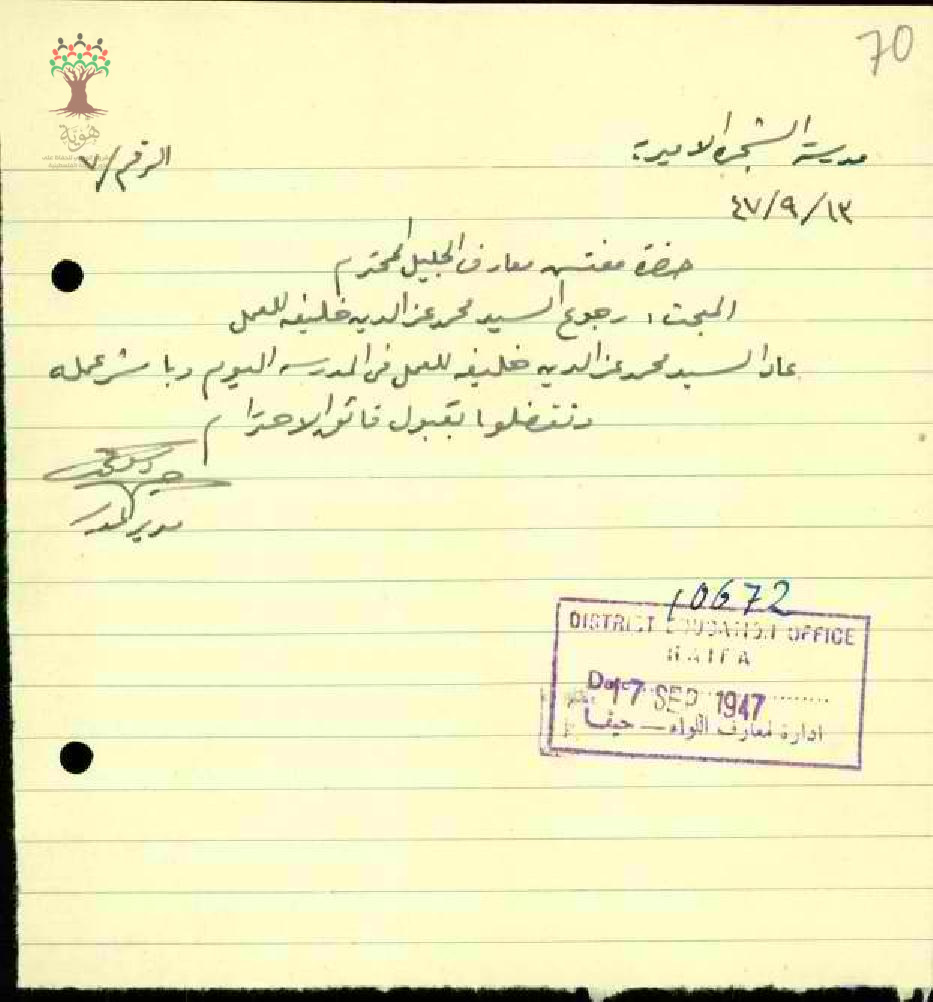 70
مدرسة الشجرة الاميرية
الرقم/٧
٤٧/٩/١٣
حضرة مفتش معارف الجليل المحترم
المبحث: رجوع السيد محمد عز الدين خليفه للعمل
عاد السيد محمد عز الدين خليفه للعمل في المدرسه اليوم وباشر عمله
وتفضلوا بقبول فائق الاحترام
مدير المدرسة
10672
DISTRICT EDUCATION OFFICE
HAIFA
Date 17 SEP 1947
ادارة معارف اللواء — حيفا
هُويَّة